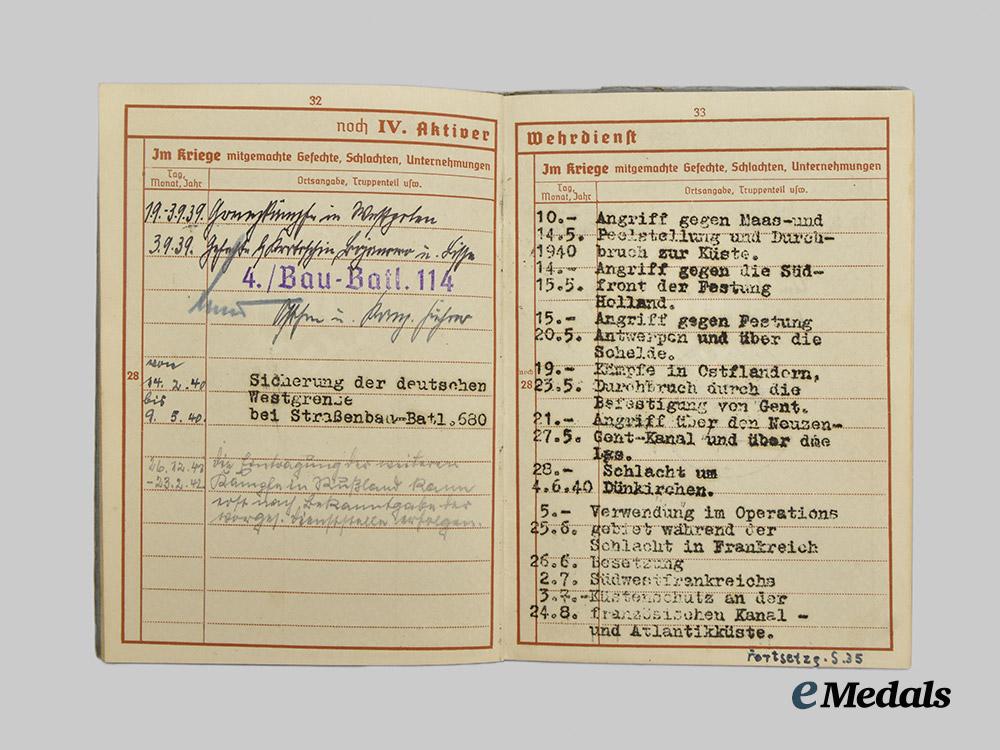 32
noch IV. Aktiver
Im Kriege mitgemachte Gefechte, Schlachten, Unternehmungen
Tag, Monat, Jahr
Ortsangabe, Truppenteil usw.
1.9.-3.9.39. Grenzkämpfe in Westpolen
3.9.39. Gefechte b. Krotoschin, u. Lissa
4./Bau-Batl. 114
u. Komp. Führer
28
von
14.2.40
bis
9.5.40.
Sicherung der deutschen
Westgrenze
bei Straßenbau-Batl.680
26.12.41
-23.2.42
die Eintragung der weiteren
Kämpfe in Rußland kann
erst nach Bekanntgabe der
vorges. Dienststelle erfolgen.
33
Wehrdienst
Im Kriege mitgemachte Gefechte, Schlachten, Unternehmungen
Tag, Monat, Jahr
Ortsangabe, Truppenteil usw.
noch
28
10.- Angriff gegen Maas-und
14.5. Peelstellung und Durch-
1940 bruch zur Küste.
14.- Angriff gegen die Süd-
15.5. front der Festung
Holland.
15.- Angriff gegen Festung
20.5. Antwerpen und über die
Schelde.
19.- Kämpfe in Ostflandern,
23.5. Durchbruch durch die
Befestigung von Gent.
21.- Angriff über den Neuzen-
27.5. Gent-Kanal und über die
Lys.
28.- Schlacht um
4.6.40 Dünkirchen.
5.- Verwendung im Operations
25.6. gebiet während der
Schlacht in Frankreich
26.6. Besetzung
2.7. Südwestfrankreichs
3.7.-Küstenschutz an der
24.8. französischen Kanal -
und Atlantikküste.
Fortsetzg. S.35
eMedals